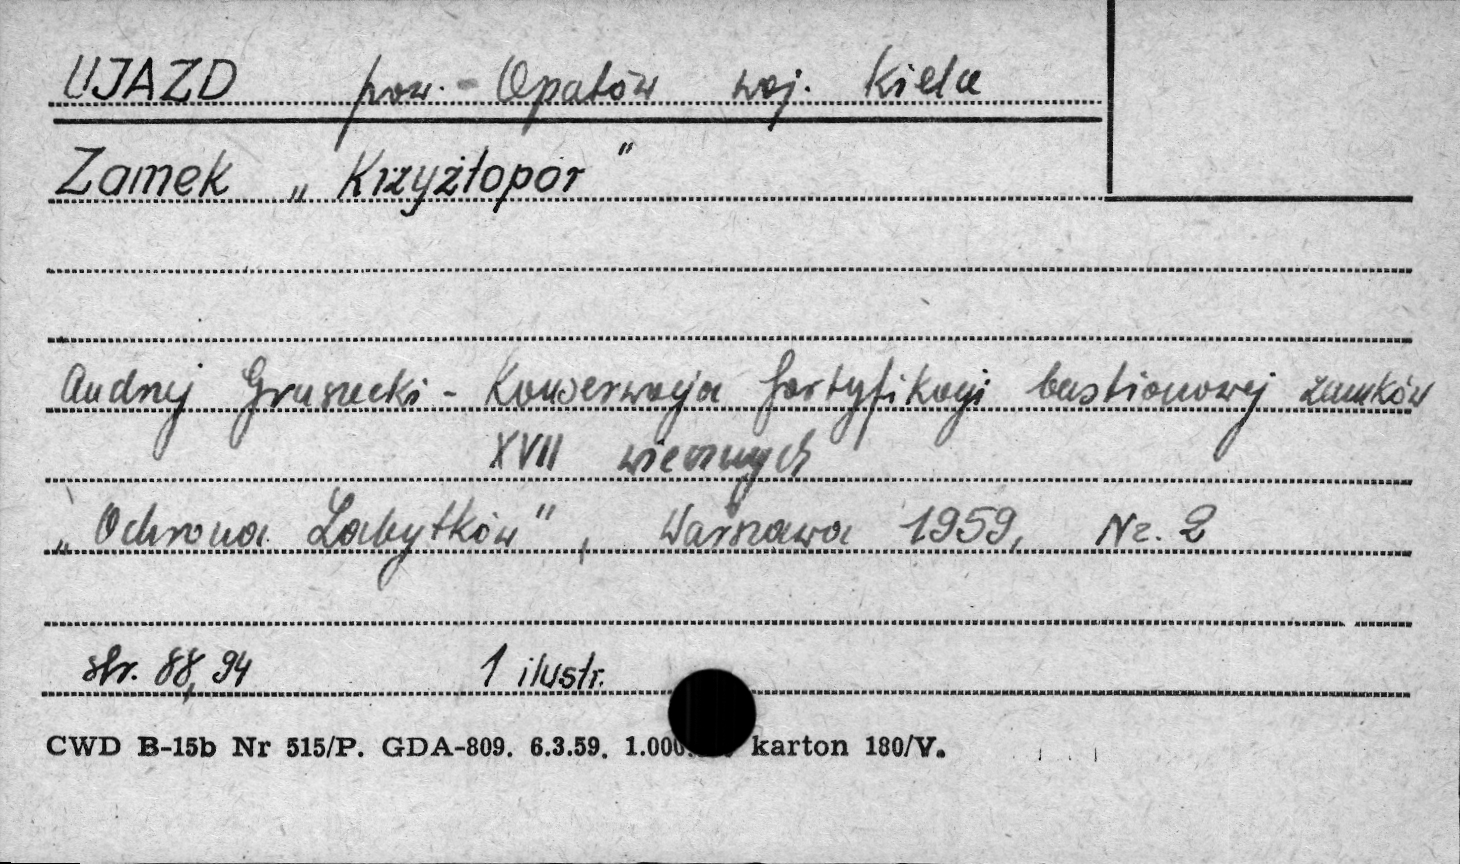 UJAZD pow. - Opatów woj. Kielce
Zamek „Krzyżtopór"
Andrzej Gruszecki - Konserwacja fortyfikacji bastionowej zamków
XVII wiecznych
„Ochrona Zabytków", Warszawa 1959, Nr. 2
str. 88, 94 1 ilustr.
CWD B-15b Nr 515/P. GDA-809. 6.3.59. 1.000. karton 180/V.